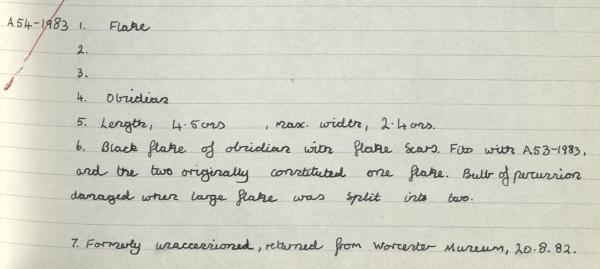 A54-1983 1. Flake
2.
3.
4. Obsidian
5. Length, 4.5cms , max. width, 2.4cms.
6. Black flake of obsidian with flake scars. Fits with A53-1983,
and the two originally constituted one flake. Bulb of percussion
damaged when large flake was split into two.
7. Formerly unaccessioned, returned from Worcester Museum, 20.8.82.